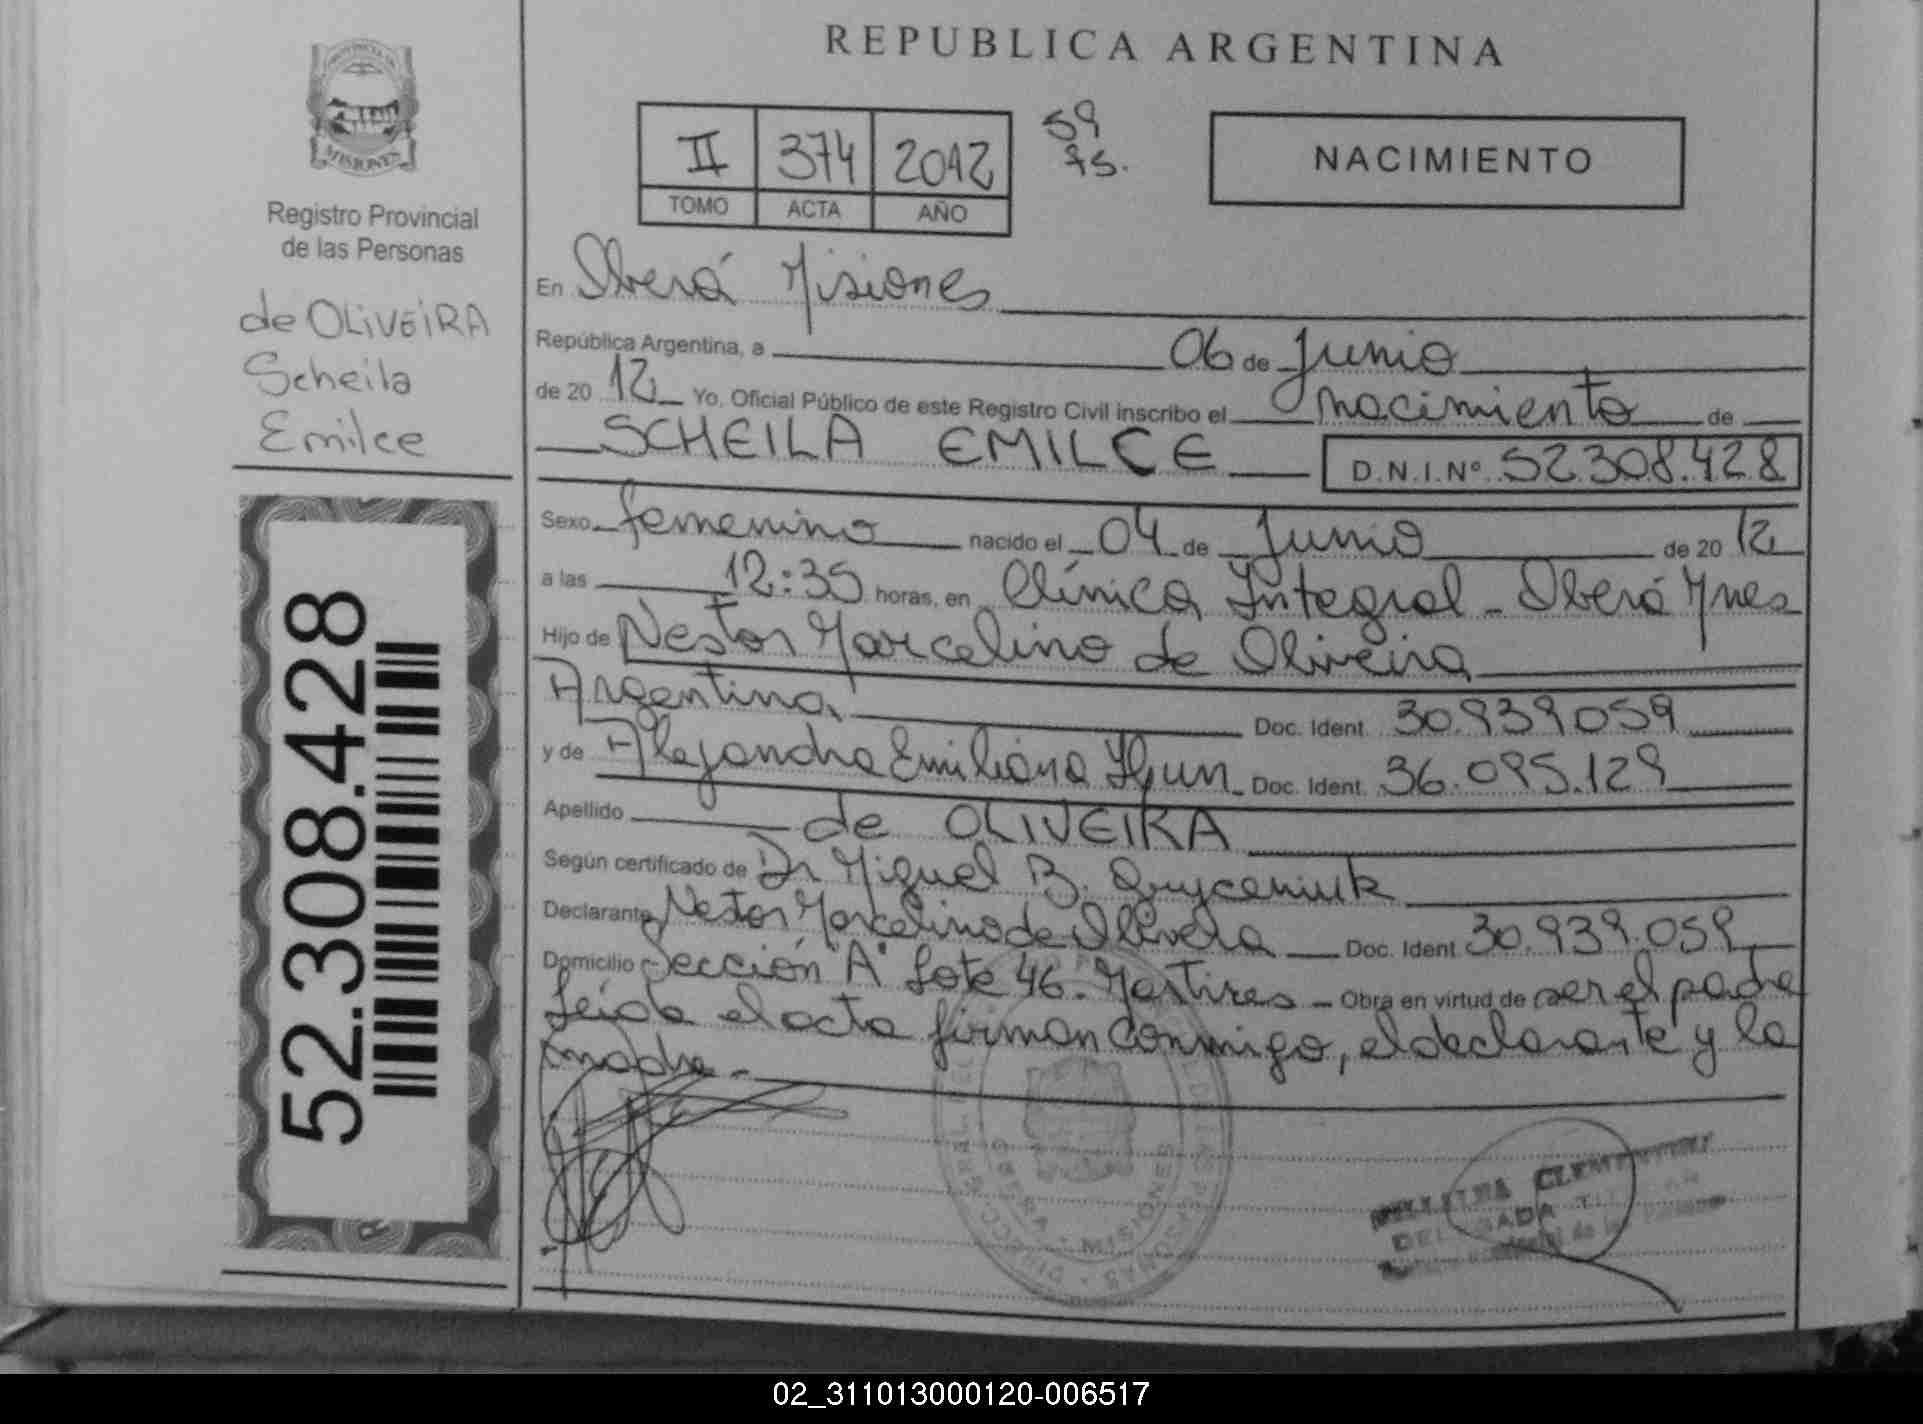 REPUBLICA ARGENTINA
PROVINCIA DE
MISIONES
Registro Provincial
de las Personas
de OLIVEIRA
Scheila
Emilce
52.308.428
II 374 2012
TOMO ACTA AÑO
59
75.
NACIMIENTO
En Oberá Misiones
República Argentina, a 06 de Junio
de 2012 Yo, Oficial Público de este Registro Civil inscribo el nacimiento de
SCHEILA EMILCE D.N.I.Nº 52.308.428
Sexo femenino nacido el 04 de Junio de 2012
a las 12:35 horas, en Clínica Integral - Oberá Mnes
Hijo de Nestor Marcelino de Oliveira
Argentina Doc. Ident. 30.939.059
y de Alejandra Emiliana Doc. Ident. 36.095.129
Apellido de OLIVEIRA
Según certificado de Dr Miguel B.
Declarante Nestor Marcelino de Oliveira Doc. Ident. 30.939.059
Domicilio Sección "A" Lote 46 - Mártires - Obra en virtud de ser el padre
Leída el acta firman conmigo, el declarante y la
madre.-
OBERA - MISIONES
DELEGADA TITULAR
02_311013000120-006517